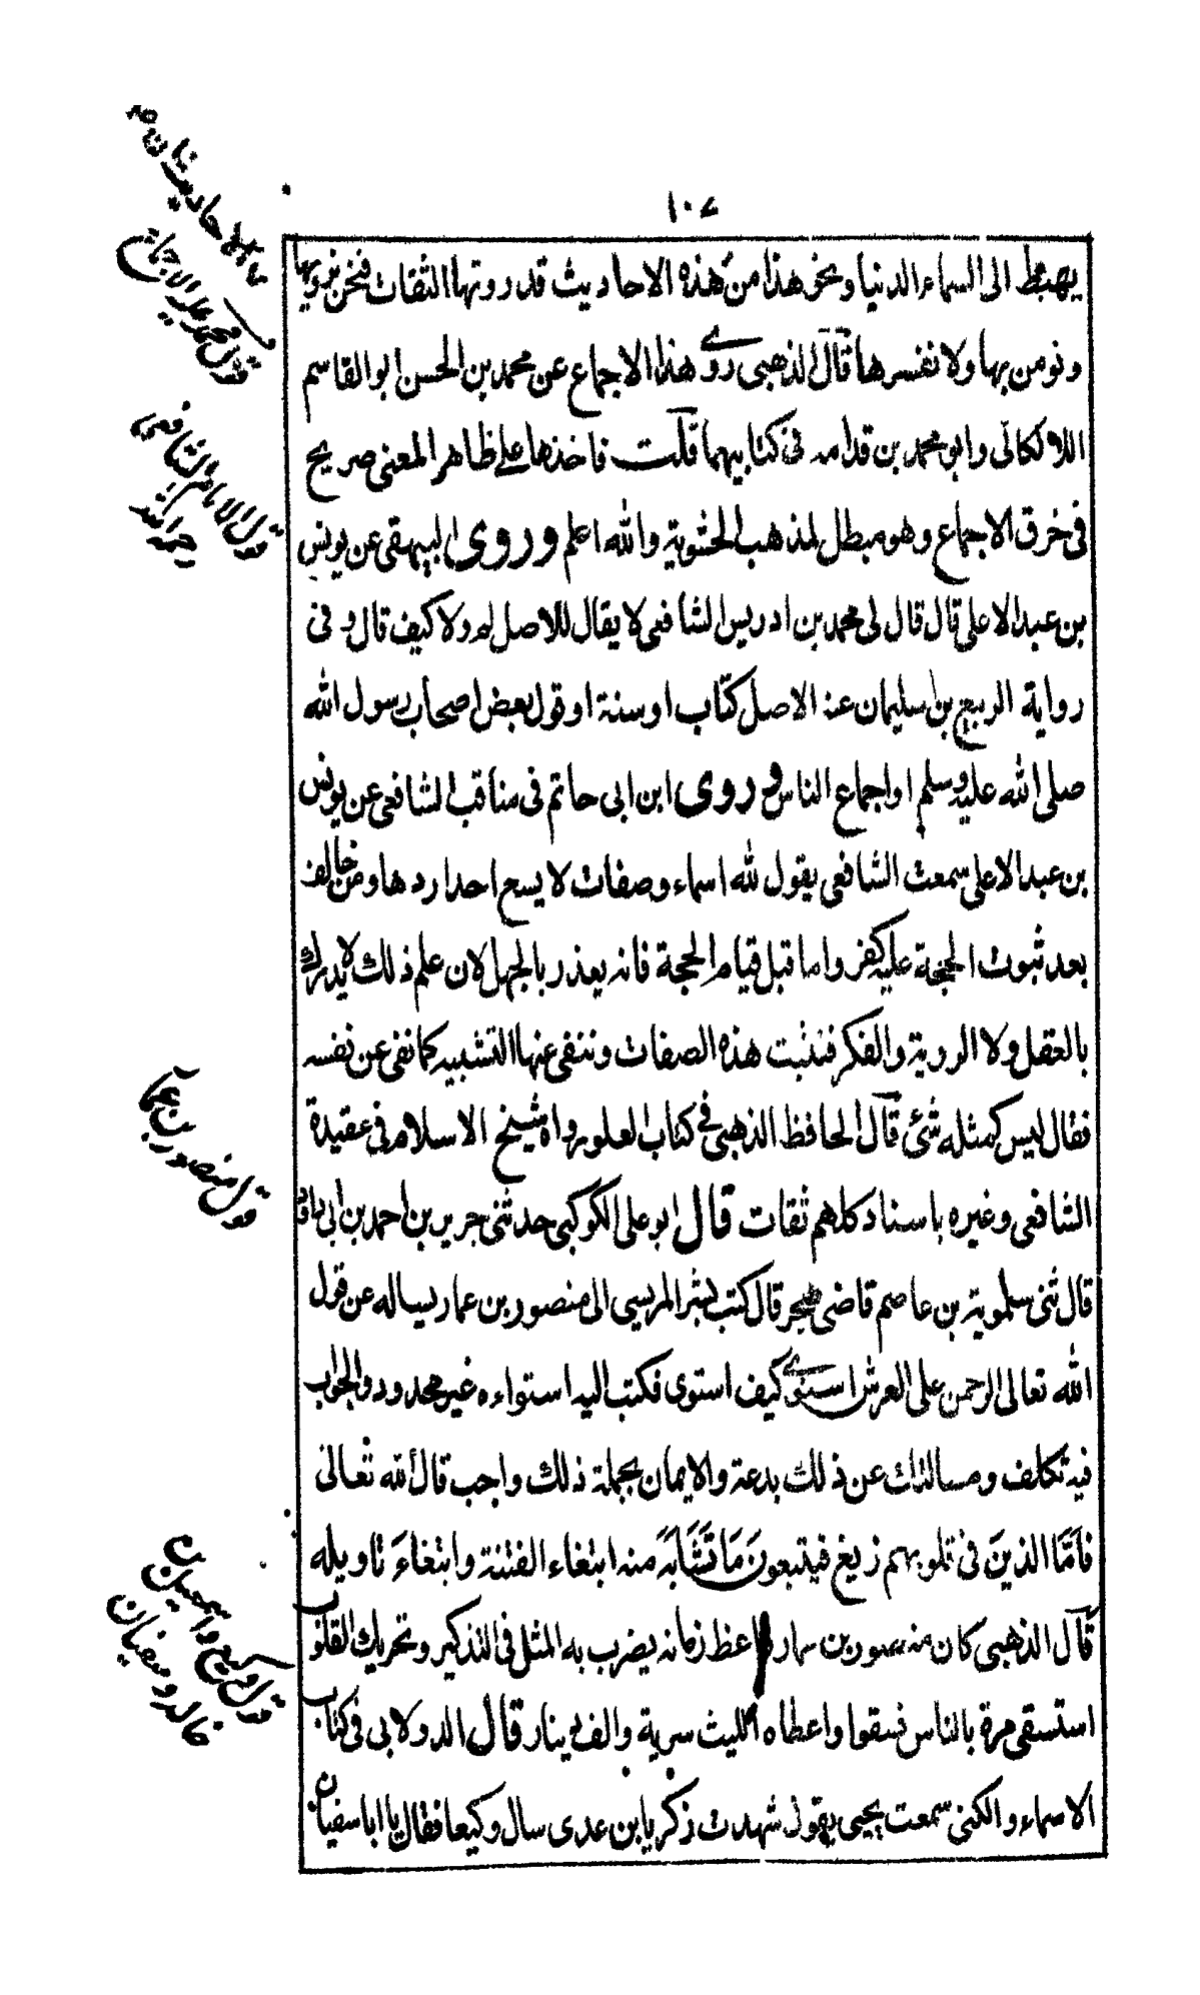 ١٠٧
يهبط الى السماء الدنيا ونحو هذا من هذه الاحاديث قد روتها الثقات فنحن نرويها
ونومن بها ولا نفسرها قال الذهبى روى هذا الاجماع عن محمد بن الحسن ابو القاسم
اللالكائى وابو محمد بن قدامه فى كتابيهما قلت فاخذها على ظاهر المعنى صريح
فى خرق الاجماع وهو مبطل لمذهب الحشوية والله اعلم وروى البيهقى عن يونس
بن عبد الاعلى قال قال لى محمد بن ادريس الشافعى لا يقال للاصل لم ولا كيف قال و فى
رواية الربيع بن سليمان عنه الاصل كتاب او سنة او قول بعض اصحاب رسول الله
صلى الله عليه وسلم او اجماع الناس وروى ابن ابى حاتم فى مناقب الشافعى عن يونس
بن عبد الاعلى سمعت الشافعى يقول لله اسماء وصفات لا يسع احدا ردها ومن خالف
بعد ثبوت الحجة عليه كفر واما قبل قيام الحجة فانه يعذر بالجهل لان علم ذلك لا يدرك
بالعقل ولا الروية والفكر فنثبت هذه الصفات وننفى عنها التشبيه كما نفى عن نفسه
فقال ليس كمثله شئ قال الحافظ الذهبى فى كتاب العلو رواه شيخ الاسلام فى عقيدة
الشافعى وغيره باسناد كلهم ثقات قال ابو على الكوكبى حدثنى جرير بن احمد بن ابى
قال ثنى سلموية بن عاصم قاضى هجر قال كتب بشر المريسى الى منصور بن عمار يساله عن قول
الله تعالى الرحمن على العرش استوى كيف استوى فكتب اليه استواءه غير محدود والجواب
فيه تكلف ومسالتك عن ذلك بدعة والايمان بجملة ذلك واجب قال الله تعالى
فَاَمَّا الذينَ فى قلوبهم زيغ فيتبعونَ مَا تَشَابَهَ منه ابتغاء الفتنة وابتغاءَ تاويله
قال الذهبى كان منصور بن عمار واعظ زمانه يضرب به المثل فى التذكير وتحريك القلوب
استسقى مرة بالناس فسقوا واعطاه الليث سرية والف دينار قال الدولابى فى كتاب
الاسماء والكنى سمعت يحيى يقول شهدت زكريا بن عدى سال وكيعا فقال يا ابا سفيان
قول محمد على الاجماع
قول الامام الشافعى
رحمه الله
قول منصور بن عمار
قول وكيع واسمعيل بن
خالد وسفيان